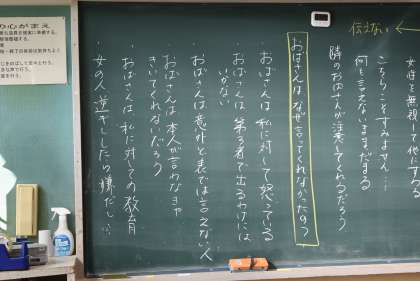 伝えない
女性を無視して他にする
こちらこそすみません…
何も言えないままだまる
隣のおばさんが注意してくれるだろう
おばさんは、なぜ言ってくれなかったのか?
・おばさんは私に対して怒っている
・おばさんは第3者で出るわけには
いかない
・おばさんは意外と表では言えない人
・おばさんは本人が言わなきゃ
きいてくれないだろう
・おばさんは、私に対しての教育
・女の人 逆ギレしたら嫌だし…
の心がまえ